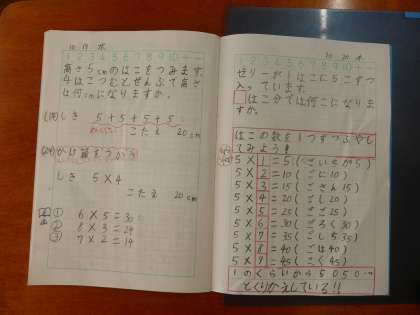 10 19 水
1 2 3 4 5 6 7 8 9 10
高さ5cmのはこをつみます。
4はこつむとぜんぶで高さ
は何cmになりますか。
しき 5+5+5+5
こたえ 20cm
かけ算をつかう
しき 5×4
こたえ 20cm
① 6×5=30
② 8×3=24
③ 7×2=14
10 20 木
1 2 3 4 5 6 7 8 9 10
ゼリーが1はこに5こずつ
入っています。
□はこ分では何こになりま
すか。
はこの数を1つずつふやし
てみよう!
5×1=5(ごいちが5)
5×2=10(ごに10)
5×3=15(ごさん15)
5×4=20(ごし20)
5×5=25(ごご25)
5×6=30(ごろく30)
5×7=35(ごしち35)
5×8=40(ごは40)
5×9=45(ごく45)
1のくらいから5050…
とくりかえしている!!